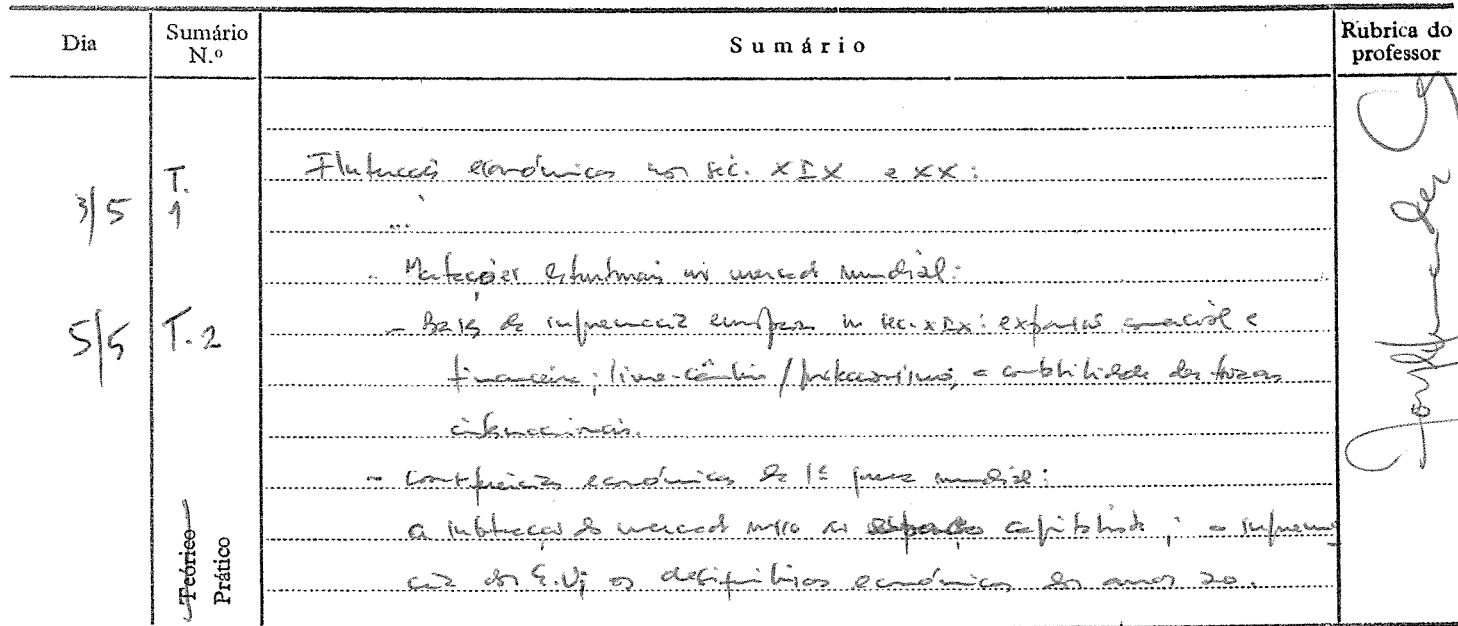 Dia
Sumário N.º
Sumário
Rubrica do professor
3/5
T. 1
Flutuações económicas nos séc. XIX e XX:
...
Mutações estruturais no mercado mundial:
5/5
T. 2
- Bases da supremacia europeia no séc. XIX: expansão comercial e
financeira; livre-câmbio / proteccionismo, a contabilidade das trocas
internacionais.
- Consequências económicas da 1ª guerra mundial:
a subtracção do mercado russo ao espaço capitalista; a suprema
cia dos E.U; os desequilíbrios económicos dos anos 20.
Teórico
Prático